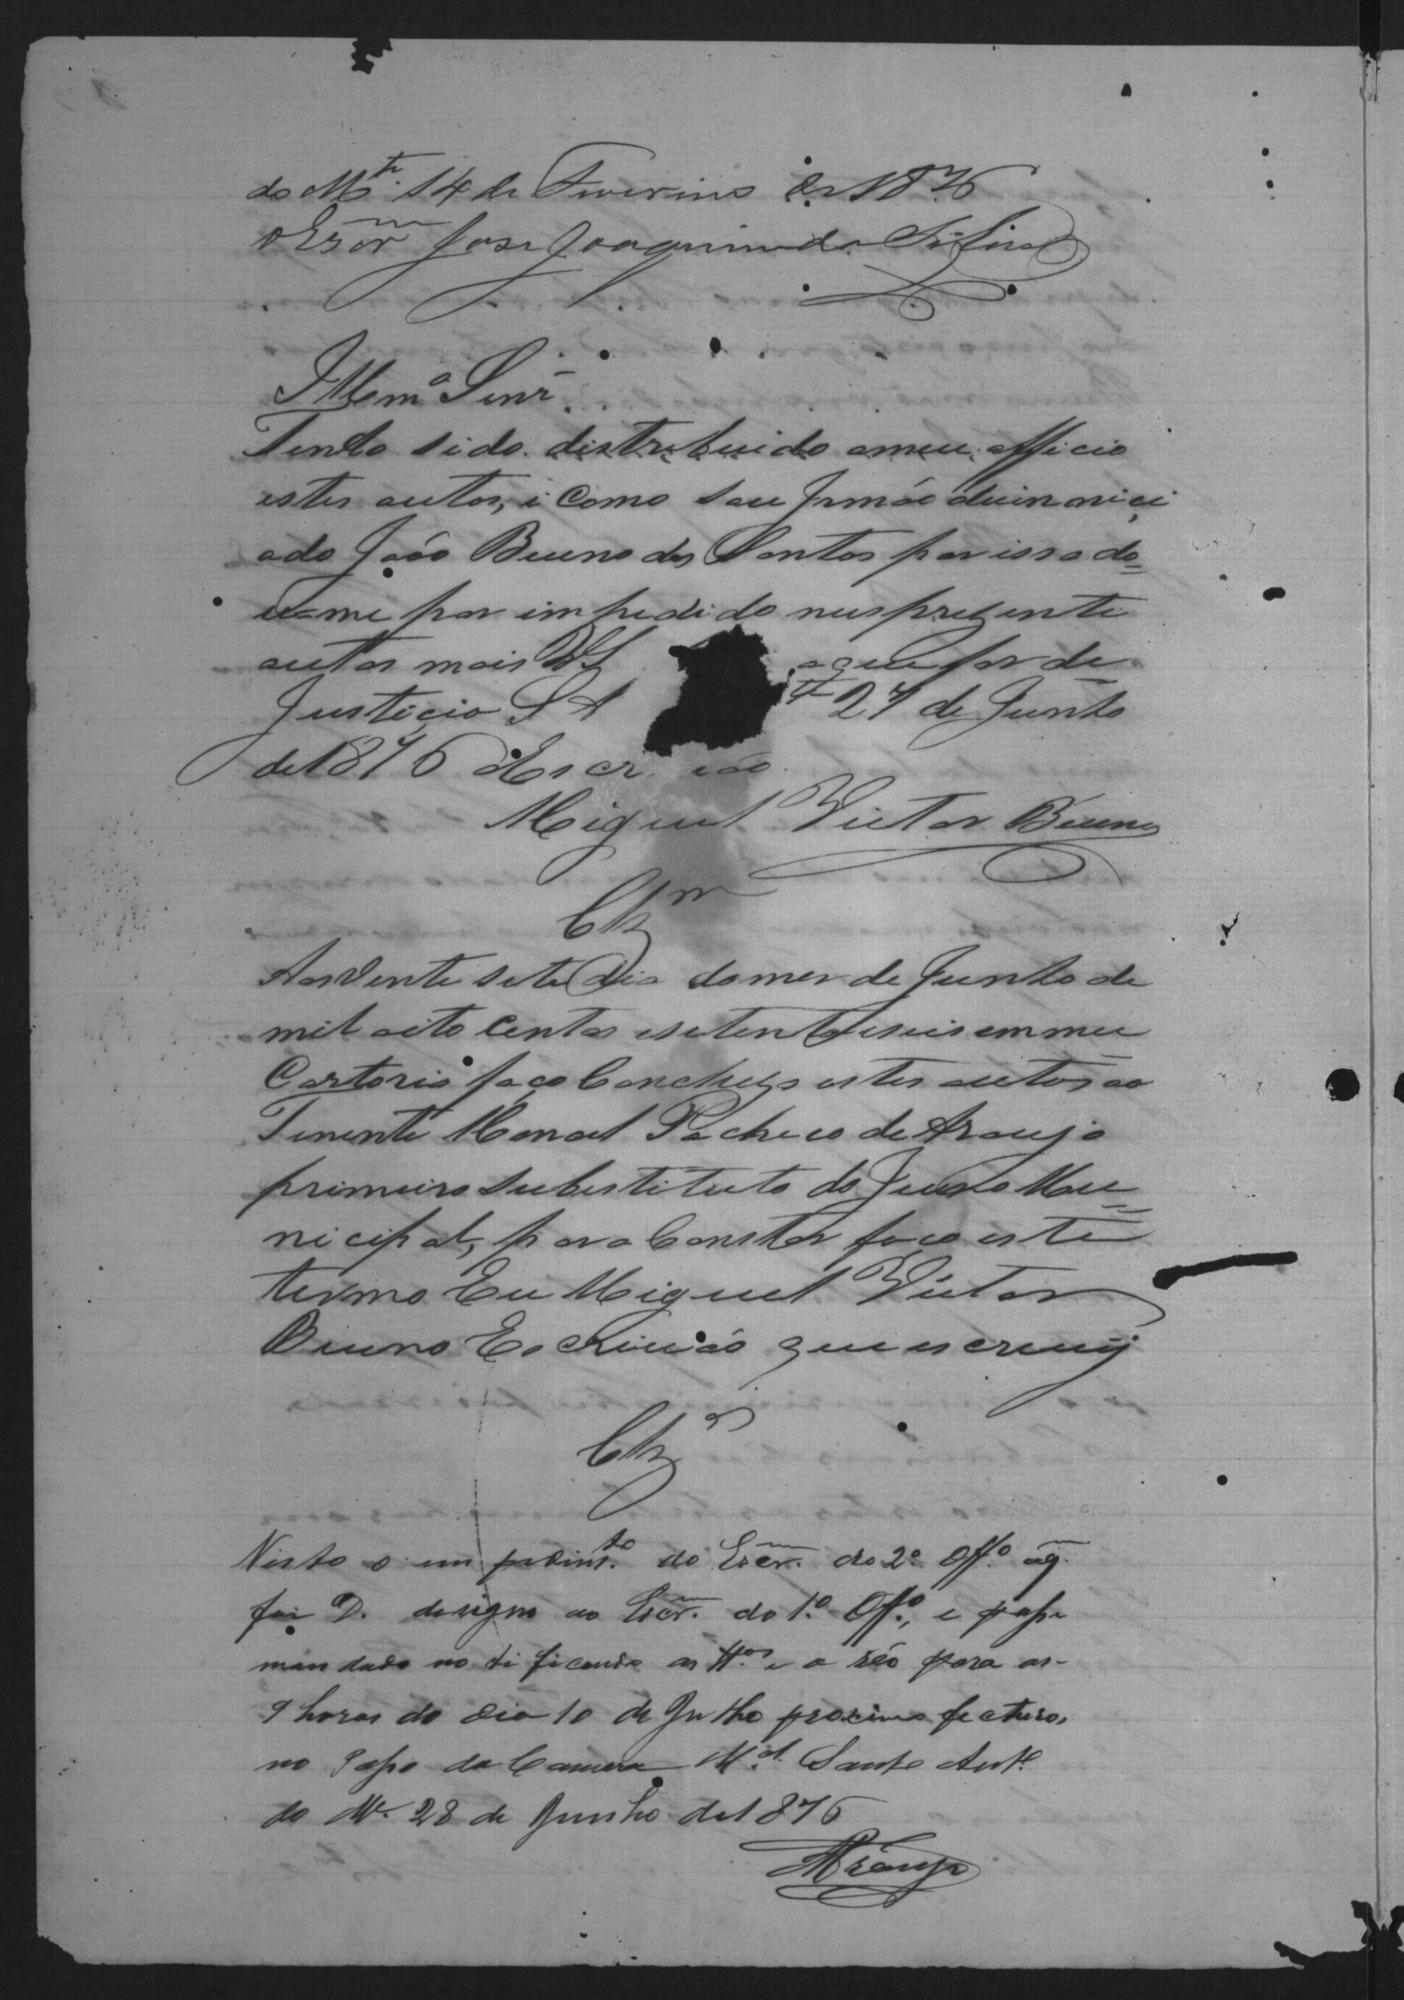 do M.te 14 de Fevereiro de 1876
o Escr.m José Joaquim da Silva
Illmo Senr.
Tendo sido distribuido a meu officio
estes autos, i como sou Irmão do innunci
ado João Bueno dos Santos por isso do=
u-me por impedido nus prezente
autos mais VS a que for de
Justiça S A 27 de Junho
de 1876 o Escr ão
Miguel Victor Bueno
Clz.m
Aos vente sete dia do mes de Junho de
mil oito centos e setenta e seis em meu
Cartorio faço Concluzos estes autos ao
Tenente Manoel Pacheco de Araujo
primeiro substituto do Juizo Mu=
nicipal, para Constar faço este
termo Eu Miguel Victor
Bueno Escrivão que escrevij
Clz.os
Visto o impedim.to do Escr.m do 2.º Off.º a q.
foi D. designo ao Escr.m do 1.º Off.º, e passe
mandado notificando as tt.as e o réo para as-
9 horas do dia 10 de Julho proximo fucturo,
no Paço da Camara M.al Santo Ant.º
do M.e 28 de Junho de 1876
Araujo